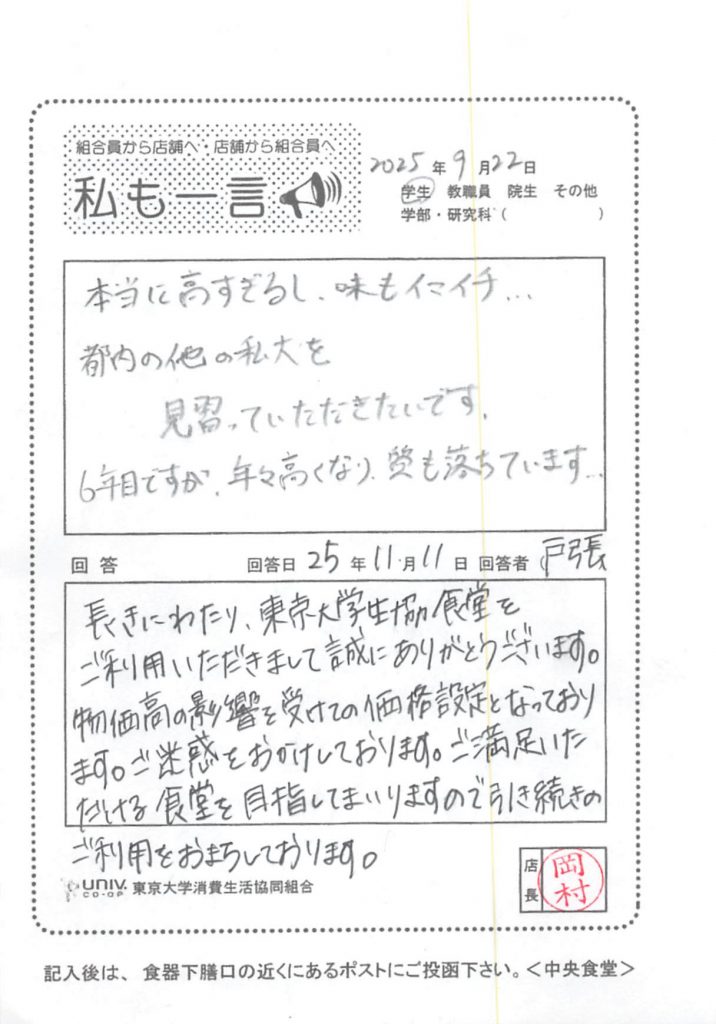 組合員から店舗へ・店舗から組合員へ
私も一言
2025年9月22日
学生 教職員 院生 その他
学部・研究科( )
本当に高すぎるし、味もイマイチ...
都内の他の私大を
見習っていただきたいです。
6年目ですが、年々高くなり、質も落ちています...
回答 回答日 25年11月11日 回答者 戸張
長きにわたり、東京大学生協食堂を
ご利用いただきまして誠にありがとうございます。
物価高の影響を受けての価格設定となっており
ます。ご迷惑をおかけしております。ご満足いた
だける食堂を目指してまいりますので引き続きの
ご利用をおまちしております。
UNIV. CO-OP 東京大学消費生活協同組合
店長 岡村
記入後は、食器下膳口の近くにあるポストにご投函下さい。<中央食堂>